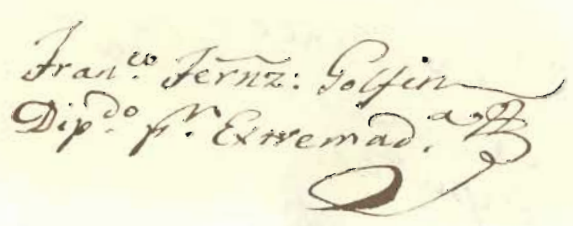 Fran.co Fernz: Golfin
Dip.do pr. Extremad.a